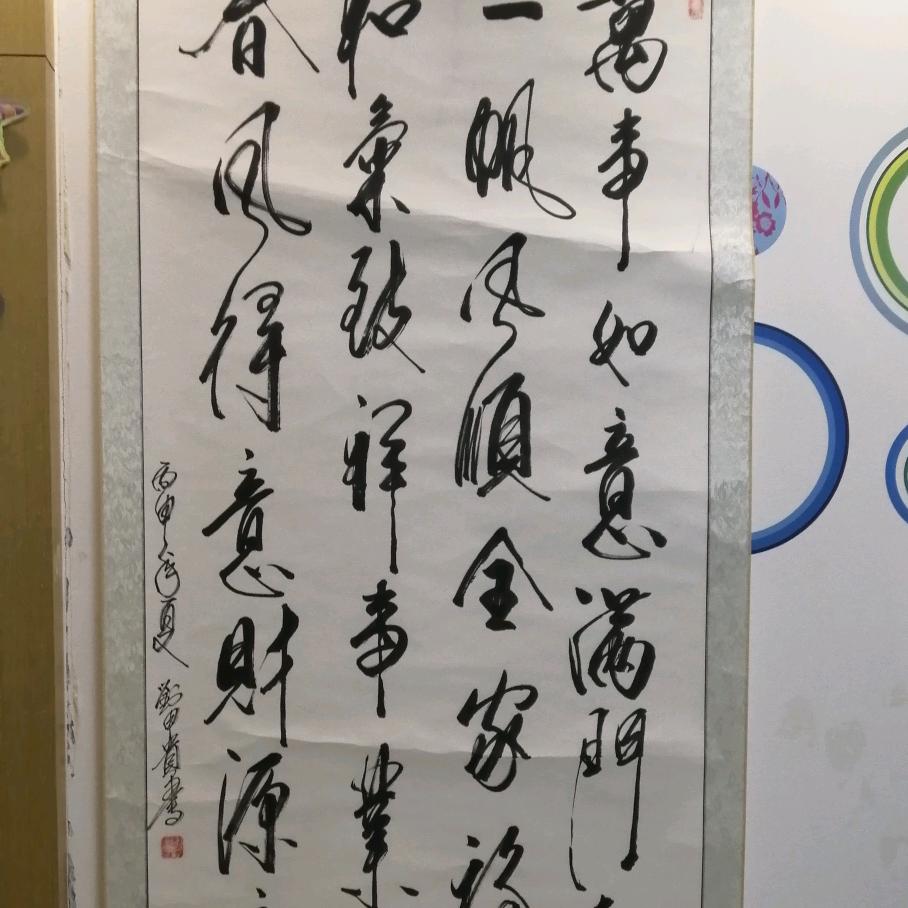 萬事如意滿門
一帆風順全家福
和氣致祥事業
春風得意財源
丙申年夏 劉甲貴書